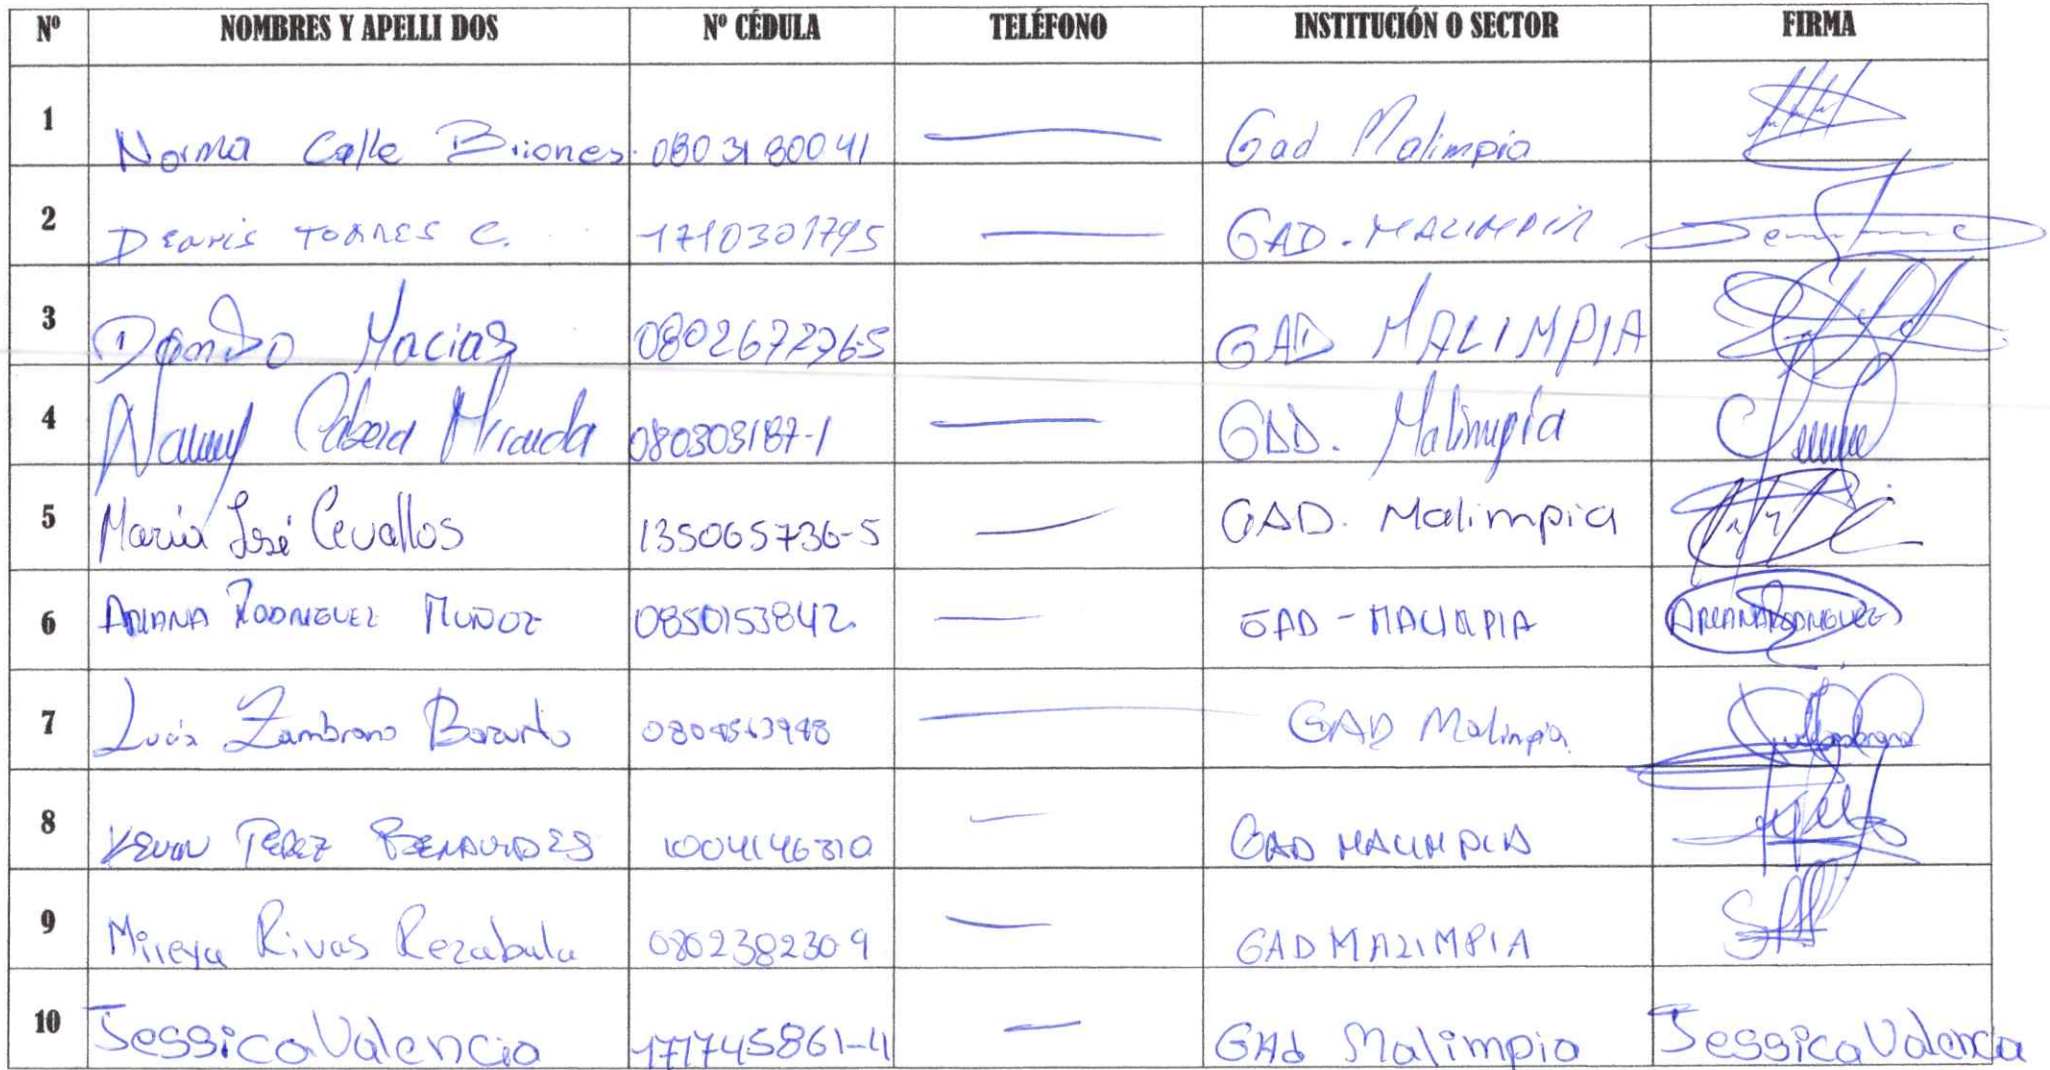 Nº NOMBRES Y APELLI DOS Nº CÉDULA TELÉFONO INSTITUCIÓN O SECTOR FIRMA
1 Norma Calle Briones. 0803180041 — Gad Malimpia
2 Dennis TORRES C. 1710301795 — GAD. MALIMPIA
3 Macias 080267276-5 GAD MALIMPIA
4 Nanny Cabera Miranda 080303187-1 — GAD. Malimpia
5 María José Cevallos 135065736-5 — GAD. Malimpia
6 ARIANA RODRIGUEZ MUÑOZ 0850153842. — GAD - MALIMPIA ARIANA RODRIGUEZ
7 Lucía Zambrano Bazurto — GAD Malimpia
8 KEVIN PEREZ BENAVIDES 1004146310 — GAD MALIMPIA
9 Mireya Rivas Rezabala 0802382309 — GAD MALIMPIA
10 Jessica Valencia 171745861-4 — GAd Malimpia Jessica Valencia